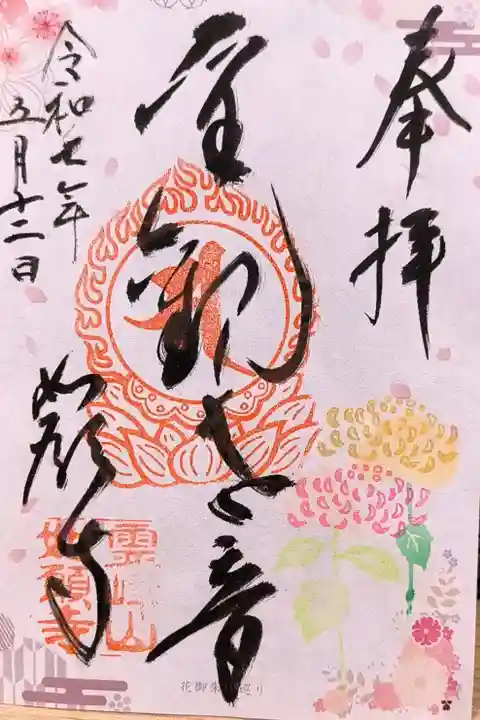 奉拝
聖観世音
如願寺
令和七年
五月十二日
雲 山
如願寺
花御朱印巡り